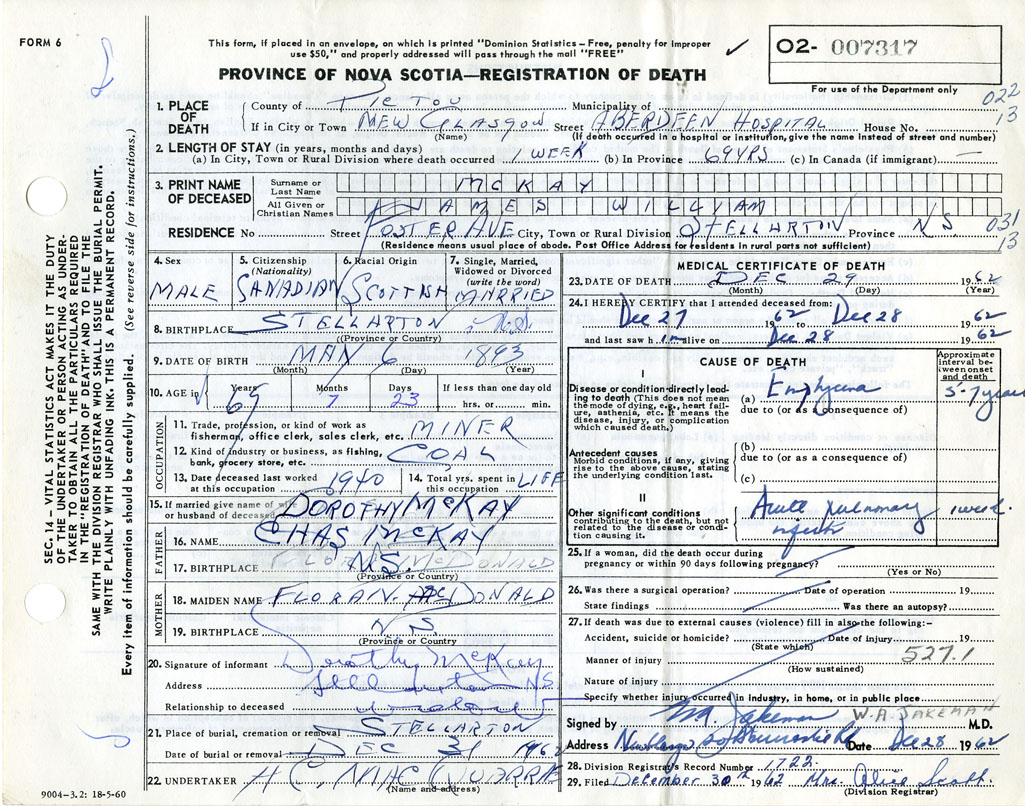 FORM 6
This form, if placed in an envelope, on which is printed "Dominion Statistics – Free, penalty for improper
use $50," and properly addressed will pass through the mail "FREE"
✓
O2- 007317
PROVINCE OF NOVA SCOTIA—REGISTRATION OF DEATH
For use of the Department only
022
13
1. PLACE OF DEATH
County of PICTOU Municipality of
If in City or Town MEW GLASGOW Street ABERDEEN HOSPITAL House No.
(Name) (If death occurred in a hospital or institution, give the name instead of street and number)
2. LENGTH OF STAY (in years, months and days)
(a) In City, Town or Rural Division where death occurred 1 WEEK (b) In Province 69 YRS (c) In Canada (if immigrant) —
3. PRINT NAME OF DECEASED
Surname or Last Name MCKAY
All Given or Christian Names JAMES WILLIAM
RESIDENCE No Street FOSTER AVE City, Town or Rural Division STELLARTON Province N.S. 031
13
(Residence means usual place of abode. Post Office Address for residents in rural parts not sufficient)
4. Sex MALE
5. Citizenship (Nationality) CANADIAN
6. Racial Origin SCOTTISH
7. Single, Married, Widowed or Divorced (write the word) MARRIED
8. BIRTHPLACE STELLARTON N.S.
(Province or Country)
9. DATE OF BIRTH MAY 6 1893
(Month) (Day) (Year)
10. AGE in Years 69 Months 7 Days 23 If less than one day old
hrs. or min.
OCCUPATION
11. Trade, profession, or kind of work as
fisherman, office clerk, sales clerk, etc. MINER
12. Kind of industry or business, as fishing,
bank, grocery store, etc. COAL
13. Date deceased last worked
at this occupation 1940
14. Total yrs. spent in
this occupation LIFE
15. If married give name of wife
or husband of deceased DOROTHY MCKAY
FATHER
16. NAME CHAS MCKAY
17. BIRTHPLACE N.S.
(Province or Country)
MOTHER
18. MAIDEN NAME FLORA N. McDONALD
19. BIRTHPLACE N.S.
(Province or Country)
20. Signature of informant Dorothy McKay
Address Stellarton NS
Relationship to deceased
21. Place of burial, cremation or removal STELLARTON
Date of burial or removal DEC 31 1962
22. UNDERTAKER
(Name and address)
9004-3.2: 18-5-60
MEDICAL CERTIFICATE OF DEATH
23. DATE OF DEATH DEC 29 1962
(Month) (Day) (Year)
24. I HEREBY CERTIFY that I attended deceased from:
Dec 27 1962 to Dec 28 1962
and last saw him alive on Dec 28 1962
CAUSE OF DEATH
Approximate interval between onset and death
I
Disease or condition directly leading to death (This does not mean the mode of dying, e.g., heart failure, asthenia, etc. It means the disease, injury, or complication which caused death.)
(a) Emphysema 5-7 years
due to (or as a consequence of)
Antecedent causes
Morbid conditions, if any, giving rise to the above cause, stating the underlying condition last.
(b)
due to (or as a consequence of)
(c)
II
Other significant conditions
contributing to the death, but not related to the disease or condition causing it.
Acute pulmonary infection 1 week.
25. If a woman, did the death occur during
pregnancy or within 90 days following pregnancy?
(Yes or No)
26. Was there a surgical operation? Date of operation 19
State findings Was there an autopsy?
27. If death was due to external causes (violence) fill in also the following:–
Accident, suicide or homicide? Date of injury 19
(State which)
Manner of injury 527.1
(How sustained)
Nature of injury
Specify whether injury occurred in industry, in home, or in public place.
Signed by W.A. Jakeman W.A. JAKEMAN M.D.
Address Date Dec 28 1962
28. Division Registrar's Record Number 1722
29. Filed December 30th 1962 Mrs. Alice Scott
(Division Registrar)
SEC. 14 – VITAL STATISTICS ACT MAKES IT THE DUTY
OF THE UNDERTAKER OR PERSON ACTING AS UNDER-
TAKER TO OBTAIN ALL THE PARTICULARS REQUIRED
IN THE "REGISTRATION OF DEATH" AND TO FILE THE
SAME WITH THE DIVISION REGISTRAR WHO SHALL ISSUE THE BURIAL PERMIT.
WRITE PLAINLY WITH UNFADING INK. THIS IS A PERMANENT RECORD.
Every item of information should be carefully supplied. (See reverse side for instructions.)